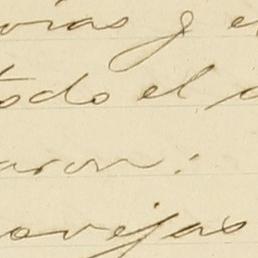 y e
todo el
aron:
ovejas